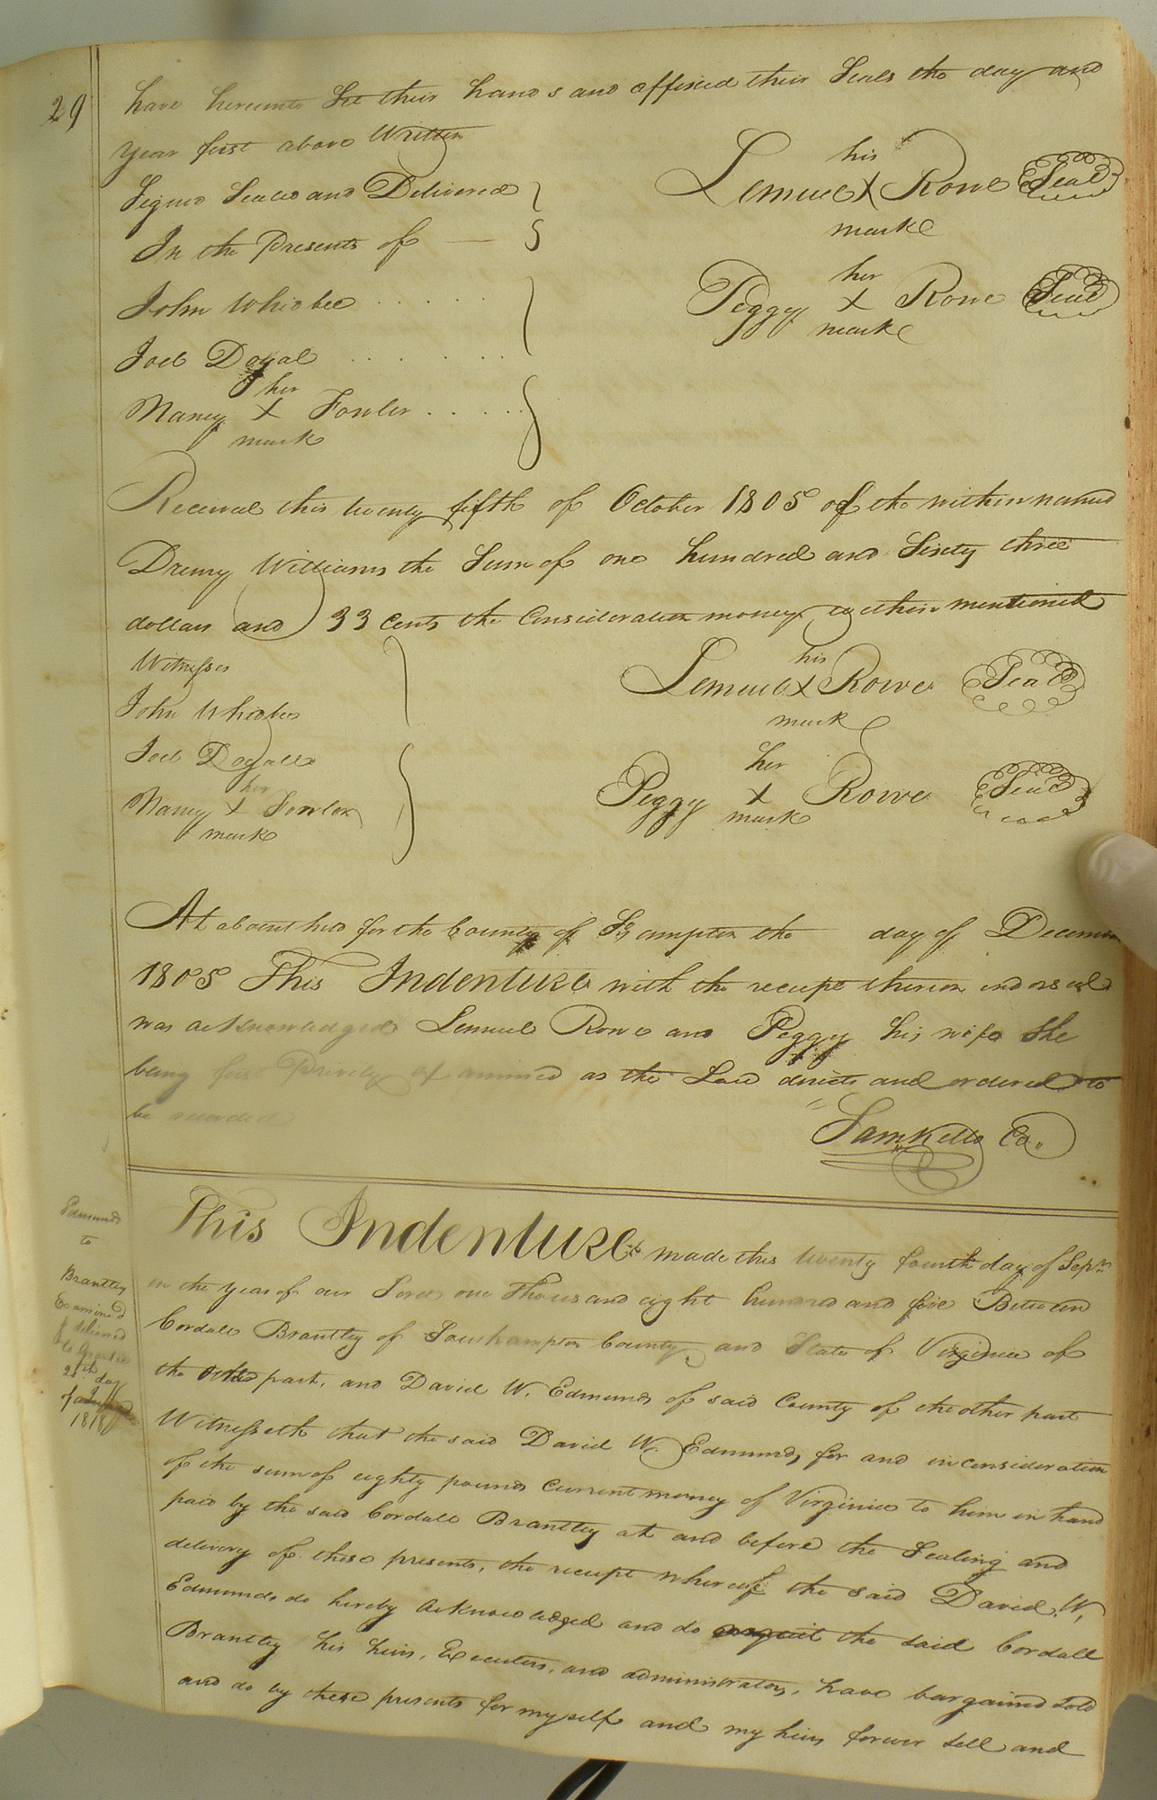 29
have hereunto Set their hands and affixed their Seals the day and
year first above Written
Signed Sealed and Delivered
In the Presents of
his
Lemuel X Rowe Seal
mark
her
Peggy X Rowe Seal
mark
John Whidbee
Joel Doyal
her
Nancy X Fowler
mark
Received this twenty fifth of October 1805 of the within named
Drewry Williams the Sum of one hundred and Sixty three
dollars and 33 Cents the Consideration money within mentioned
Witnesses
John Whidbee
Joel Doyall
her
Nancy X Fowler
mark
his
Lemuel X Rowe Seal
mark
her
Peggy X Rowe Seal
mark
At a bourt held for the County of Southampton the day of December
1805 This Indenture with the receipt thereon endorsed
was acknowledged Lemuel Rowe and Peggy his wife She
being first Privily examined as the Law directs and ordered to
be recorded
Sam Kello Co.
Edmunds
to
Brantley
Examined
& delivered
to Grantee
25th day
1818
This Indenture made this twenty fourth day of Sepr.
in the year of our Lord one Thousand eight hundred and five Between
Cordall Brantley of Southampton County and State of Virginia of
the one part, and David W. Edmunds of said County of the other part
Witnesseth that the said David W. Edmunds, for and in consideration
of the sum of eighty pounds Current money of Virginia to him in hand
paid by the said Cordall Brantley at and before the Sealing and
delivery of these presents, the receipt whereof the said David W.
Edmunds do hereby acknowledged and do acquit the said Cordall
Brantley his heirs, Executors, and administrators, have bargained Sold
and do by these presents for my self and my heirs forever sell and